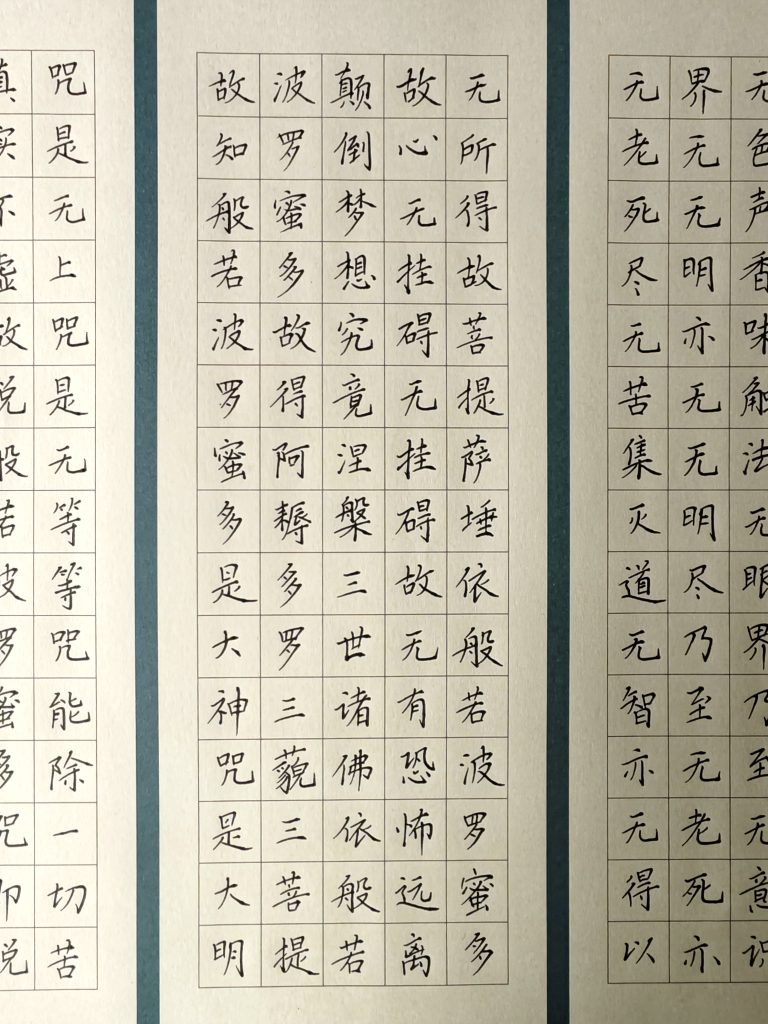 无色声香味触法无眼界乃至无意识
界无无明亦无无明尽乃至无老死亦
无老死尽无苦集灭道无智亦无得以
无所得故菩提萨埵依般若波罗蜜多
故心无挂碍无挂碍故无有恐怖远离
颠倒梦想究竟涅槃三世诸佛依般若
波罗蜜多故得阿耨多罗三藐三菩提
故知般若波罗蜜多是大神咒是大明
咒是无上咒是无等等咒能除一切苦
真实不虚故说般若波罗蜜多咒即说